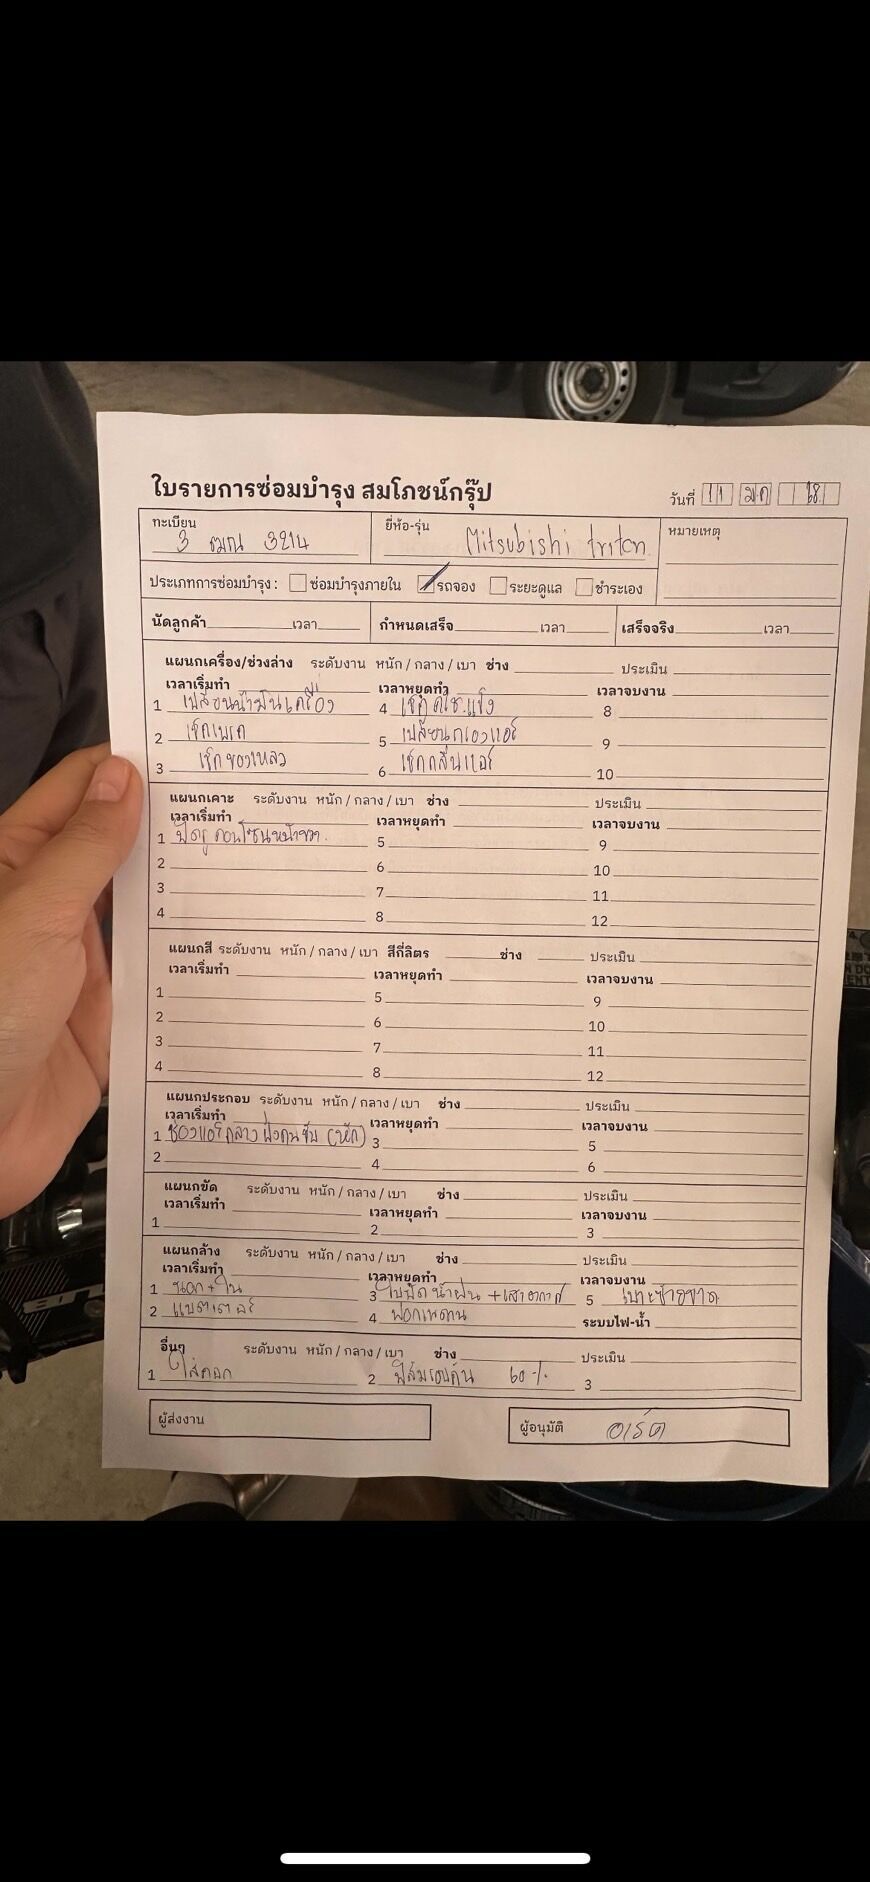 ใบรายการซ่อมบำรุง สมโภชน์กรุ๊ป
วันที่ 11 ม.ค 68
ทะเบียน 3 ฒฌ 3214 ยี่ห้อ-รุ่น Mitsubishi triton หมายเหตุ
ประเภทการซ่อมบำรุง : ซ่อมบำรุงภายใน รถจอง ระยะดูแล ชำระเอง
นัดลูกค้า เวลา กำหนดเสร็จ เวลา เสร็จจริง เวลา
แผนกเครื่อง/ช่วงล่าง ระดับงาน หนัก / กลาง / เบา ช่าง ประเมิน
เวลาเริ่มทำ เวลาหยุดทำ เวลาจบงาน
1 เปลี่ยนน้ำมันเครื่อง 4 เช็ค 8
2 เช็คเบรค 5 เปลี่ยนกรองแอร์ 9
3 เช็คของเหลว 6 เช็คกลิ่นแอร์ 10
แผนกเคาะ ระดับงาน หนัก / กลาง / เบา ช่าง ประเมิน
เวลาเริ่มทำ เวลาหยุดทำ เวลาจบงาน
1 ปิดรู คอนโซนหน้าขวา 5 9
2 6 10
3 7 11
4 8 12
แผนกสี ระดับงาน หนัก / กลาง / เบา สีกี่ลิตร ช่าง ประเมิน
เวลาเริ่มทำ เวลาหยุดทำ เวลาจบงาน
1 5 9
2 6 10
3 7 11
4 8 12
แผนกประกอบ ระดับงาน หนัก / กลาง / เบา ช่าง ประเมิน
เวลาเริ่มทำ เวลาหยุดทำ เวลาจบงาน
1 ช่องแอร์กลาง ฝั่งคนขับ (หัก) 3 5
2 4 6
แผนกขัด ระดับงาน หนัก / กลาง / เบา ช่าง ประเมิน
เวลาเริ่มทำ เวลาหยุดทำ เวลาจบงาน
1 2 3
แผนกล้าง ระดับงาน หนัก / กลาง / เบา ช่าง ประเมิน
เวลาเริ่มทำ เวลาหยุดทำ เวลาจบงาน
1 นอก + ใน 3 ใบปัดน้ำฝน + เสาอากาศ 5 เบาะซ้ายขาด
2 แบตเตอรี่ 4 ฟอกเพดาน ระบบไฟ-น้ำ
อื่นๆ ระดับงาน หนัก / กลาง / เบา ช่าง ประเมิน
1 ใส่ดอก 2 ฟิล์มรอบคัน 60 % 3
ผู้ส่งงาน ผู้อนุมัติ อาร์ต